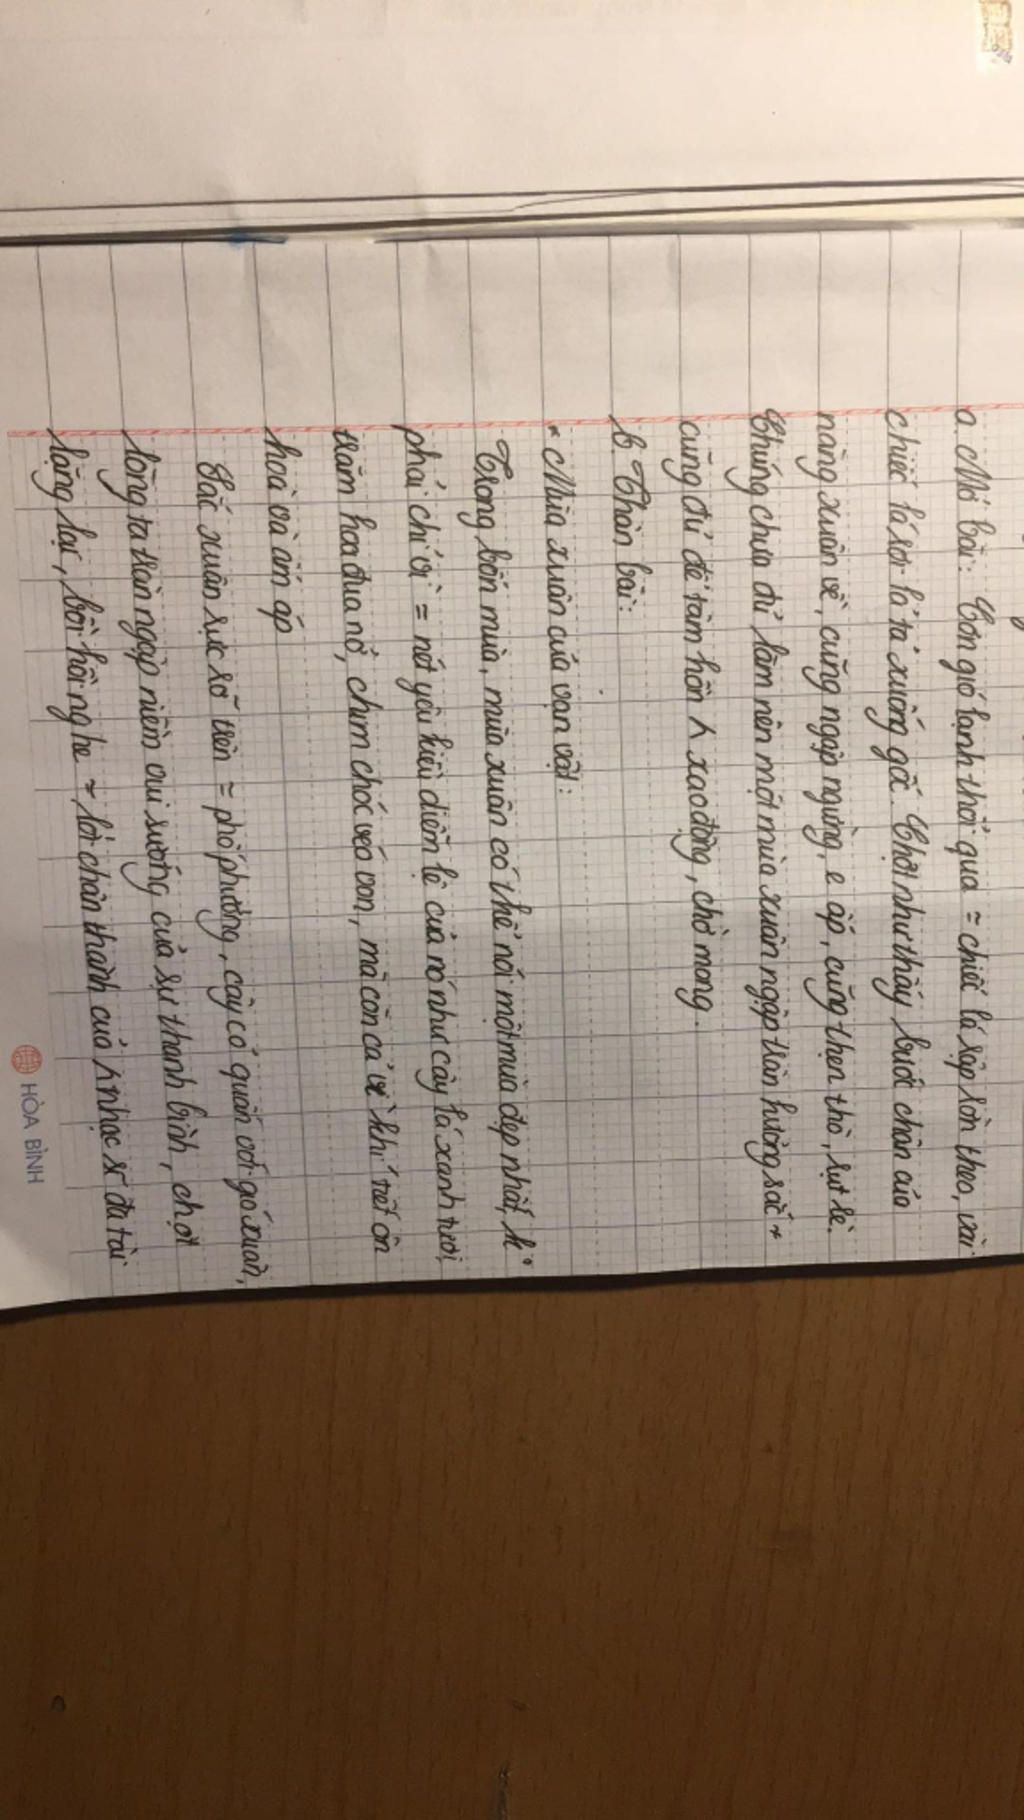 a. Mở bài: Cơn gió lạnh thổi qua = chiếc lá rập rờn theo, vài
chiếc lá rơi lả tả xuống gốc. Chợt như thấy bước chân của
nàng xuân về, cũng ngập ngừng, e ấp, cũng thẹn thò, rụt rè.
Chúng chưa đủ làm nên một mùa xuân ngập tràn hương sắc +
cũng đủ để tâm hồn ^ xao động, chờ mong.
b. Thân bài:
* Mùa xuân của vạn vật:
Trong bốn mùa, mùa xuân có thể nói một mùa đẹp nhất, k°
phải chỉ vì = nét yêu kiều diễm lệ của nó như cây lá xanh tươi,
trăm hoa đua nở, chim chóc véo von, mà còn cả vì khí tiết ôn
hoà và ấm áp
Sắc xuân rực rỡ trên = phố phường, cây cỏ quấn với gió xuân,
lòng ta tràn ngập niềm vui sướng của sự thanh bình, chợt
lặng lại, bồi hồi nghe = lời chân thành của ^ nhạc sĩ đa tài
HÒA BÌNH